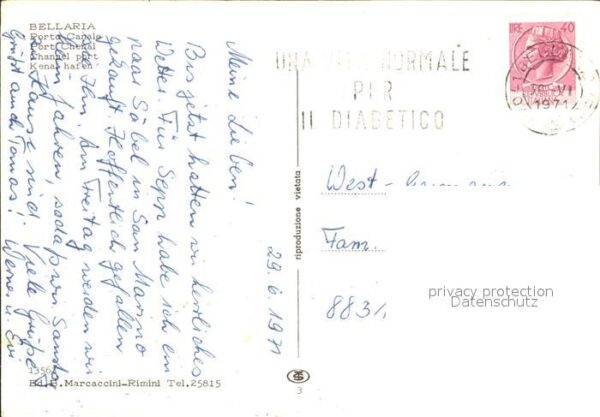 BELLARIA
Porto Canale
Port Chenal
Channel port
Kenal hafen
Meine Lieben!
Bis jetzt hatten wir herrliches
Wetter. Für Sepp habe ich ein
paar Säbel in San Marino
gekauft. Hoffentlich gefallen
sie ihm. Am Freitag werden wir
heim fahren, sodaß wir Samstag
zu Hause sind. Viele Grüße
Grüßt auch Tomas! Werner u. Evi
29.6.1971
1356
Ed. G. Marcaccini-Rimini Tel.25815
riproduzione vietata
3
UNA VITA NORMALE
PER
IL DIABETICO
LIRE 40
1971
West-
Fam.
8831
privacy protection
Datenschutz